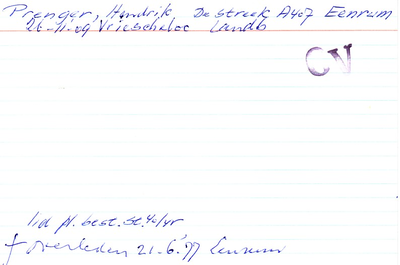 Prenger, Hendrik De streek A407 Eenrum
26-11-09 Vriescheloo Landb
CN
lid pl. best. St.40/yr
† overleden 21-6-'77 Eenrum